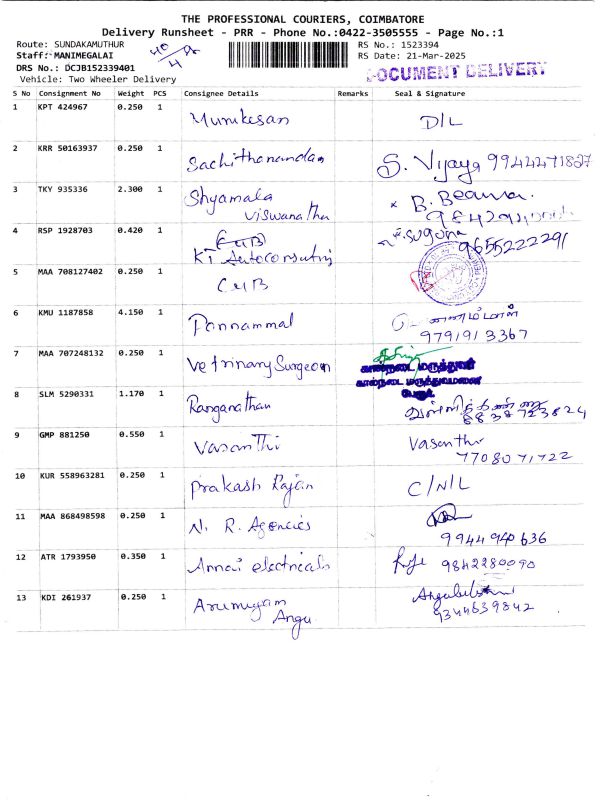 THE PROFESSIONAL COURIERS, COIMBATORE
Delivery Runsheet - PRR - Phone No.:0422-3505555 - Page No.:1
Route: SUNDAKAMUTHUR
Staff: MANIMEGALAI
DRS No.: DCJB152339401
Vehicle: Two Wheeler Delivery
RS No.: 1523394
RS Date: 21-Mar-2025
DOCUMENT DELIVERY
S No Consignment No Weight PCS Consignee Details Remarks Seal & Signature
1 KPT 424967 0.250 1 Murukesan D/L
2 KRR 50163937 0.250 1 Sachithanandan S. Vijaya 9944471827
3 TKY 935336 2.300 1 Shyamala
Viswanatha
4 RSP 1928703 0.420 1 KT Autoconsulting
Suguna 9655222291
5 MAA 708127402 0.250 1 CUB
6 KMU 1187858 4.150 1 Ponnammal
9791913367
7 MAA 707248132 0.250 1 Vetrinary Surgeon
கால்நடை மருத்துவர்
கால்நடை மருத்துவமனை
பேரூர்
8 SLM 5290331 1.170 1 Ranganathan
8838723824
9 GMP 881250 0.550 1 Vasanthi Vasanthi
7708071722
10 KUR 558963281 0.250 1 Prakash Rajan C/N/L
11 MAA 868498598 0.250 1 N. R. Agencies
9944940636
12 ATR 1793950 0.350 1 Annai electricals 9842280090
13 KDI 261937 0.250 1 Arumugam
Angu
9344639842